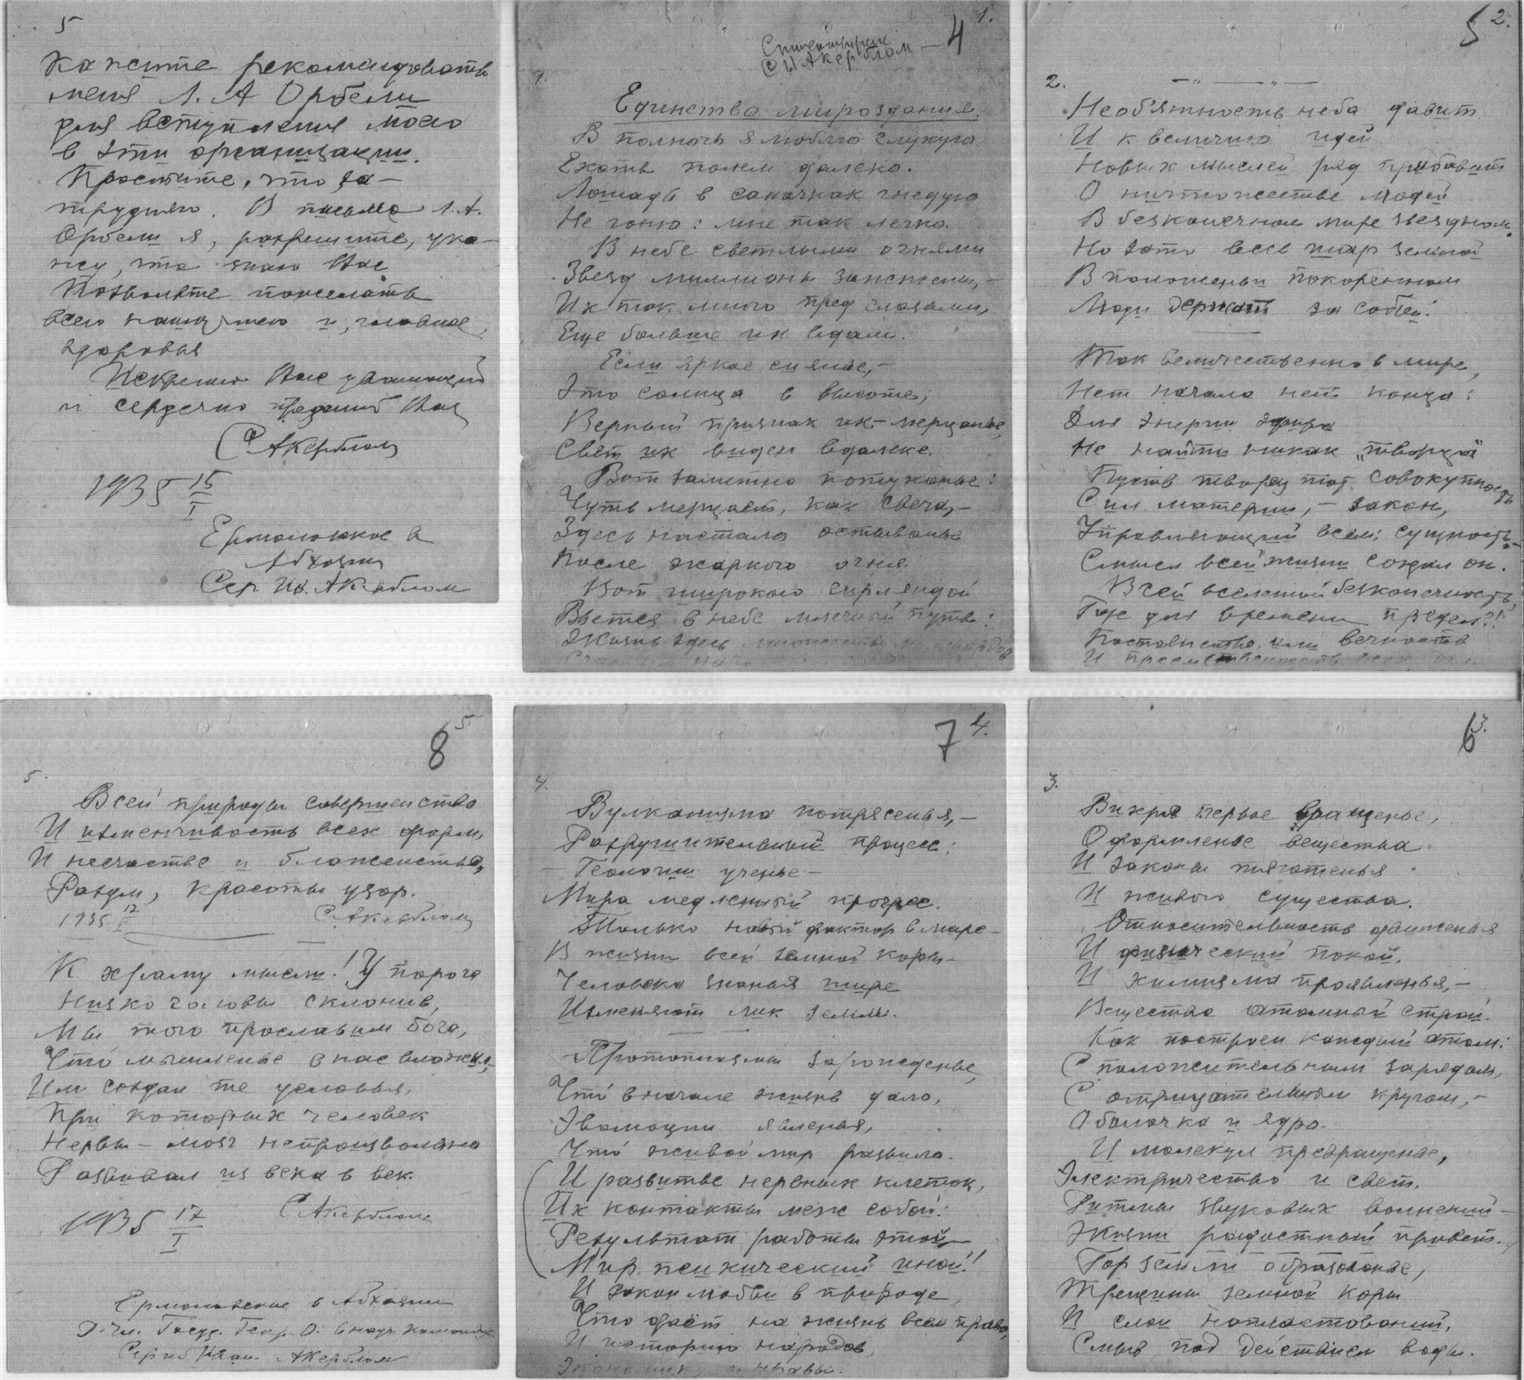 5
кажите рекомендовать
меня Л. А Орбели
для вступления моего
в эти организации.
Простите, что за-
трудняю. В письме Л.А.
Орбели я, разрешите, ука-
жу, что знаю Вас
Позвольте пожелать
всего наилучшего и, главное,
здоровья
Искренно Вас уважающий
и сердечно преданный Вам
С Акерблом
1935 15/I
Ермоловское в
Абхазии
Сер Ив. Акерблом
1.
4
С И Акерблом
1.
Единство мироздания.
В полночь я люблю глухую
Ехать полем далеко.
Лошадь в саночках гнедую
Не гоню: мне так легко.
В небе светлыми огнями
Звезд миллионы зажжены, -
Их так много пред глазами,
Еще больше их вдали.
Если яркое сиянье, -
Это солнца в высоте;
Верный признак их - мерцанье,
Свет их виден вдалеке.
Вот заметно потуханье:
Чуть мерцает, как свеча, -
Здесь настало остыванье
После жаркого огня.
Вот широкою гирляндой
Вьется в небе млечный путь:
Жизнь здесь
2.
5
2.
Необъятность неба давит
И к величию идей
Новых мыслей ряд прибавит
О ничтожестве людей
В безконечном мире звездном.
Но зато весь шар земной
В положеньи покоренном
Люди держат за собой!
Так величественно в мире,
Нет начала нет конца:
Для энергии эфира
Не найти никак „творца"
Пусть творец тот, совокупность
Сил материи, - закон,
Управляющий всем; сущность
Смысл всей жизни создал он.
Всей вселенной безконечность,
Где для времени предел?!
Постоянство или вечность
5.
8
5.
Всей природы совершенство
И изменчивость всех форм,
И несчастье и блаженство,
Разум, красоты узор.
1935 17/I С. Акерблом
К храму мысли! У порога
Низко головы склонив,
Мы того прославим бога,
Что мышленье в нас вложил,
Им создал те условья,
При которых человек
Нервы - мозг непроизвольно
Развивал из века в век.
С Акерблом
1935 17/I
Ермоловское в Абхазии
Сергей Иван. Акерблом
4.
7
4.
Вулканизма потрясенья, -
Разрушительный процесс:
Геологии ученье -
Мира медленный прогресс.
Только новый фактор в мире -
В жизни всей земной коры -
Человека знанья шире
Изменяют лик земли.
Протоплазмы зарожденье,
Что в начале жизнь дало,
Эволюции явленья,
Что живой мир развило.
И развитье нервных клеток,
Их контакты меж собой:
Результат работы этой
Мир психический иной!!
И закон любви в природе,
Что дает на жизнь всем право
И историю народов,
Экономику и нравы.
3.
6
3.
Вихря первое вращенье,
Оформленье вещества
И законы тяготенья
И живого существа.
Относительность движенья
И физический покой,
И химизма проявленья, -
Вещества атомный строй.
Как построен каждый атом:
С положительным зарядом,
С отрицательным кругом, -
Оболочка и ядро.
И молекул превращенье,
Электричество и свет.
Ритмы звуковых волнений -
Жизни радостный привет.
Гор земли образованье,
Трещины земной коры
И слои напластований,
Смыв под действием воды.